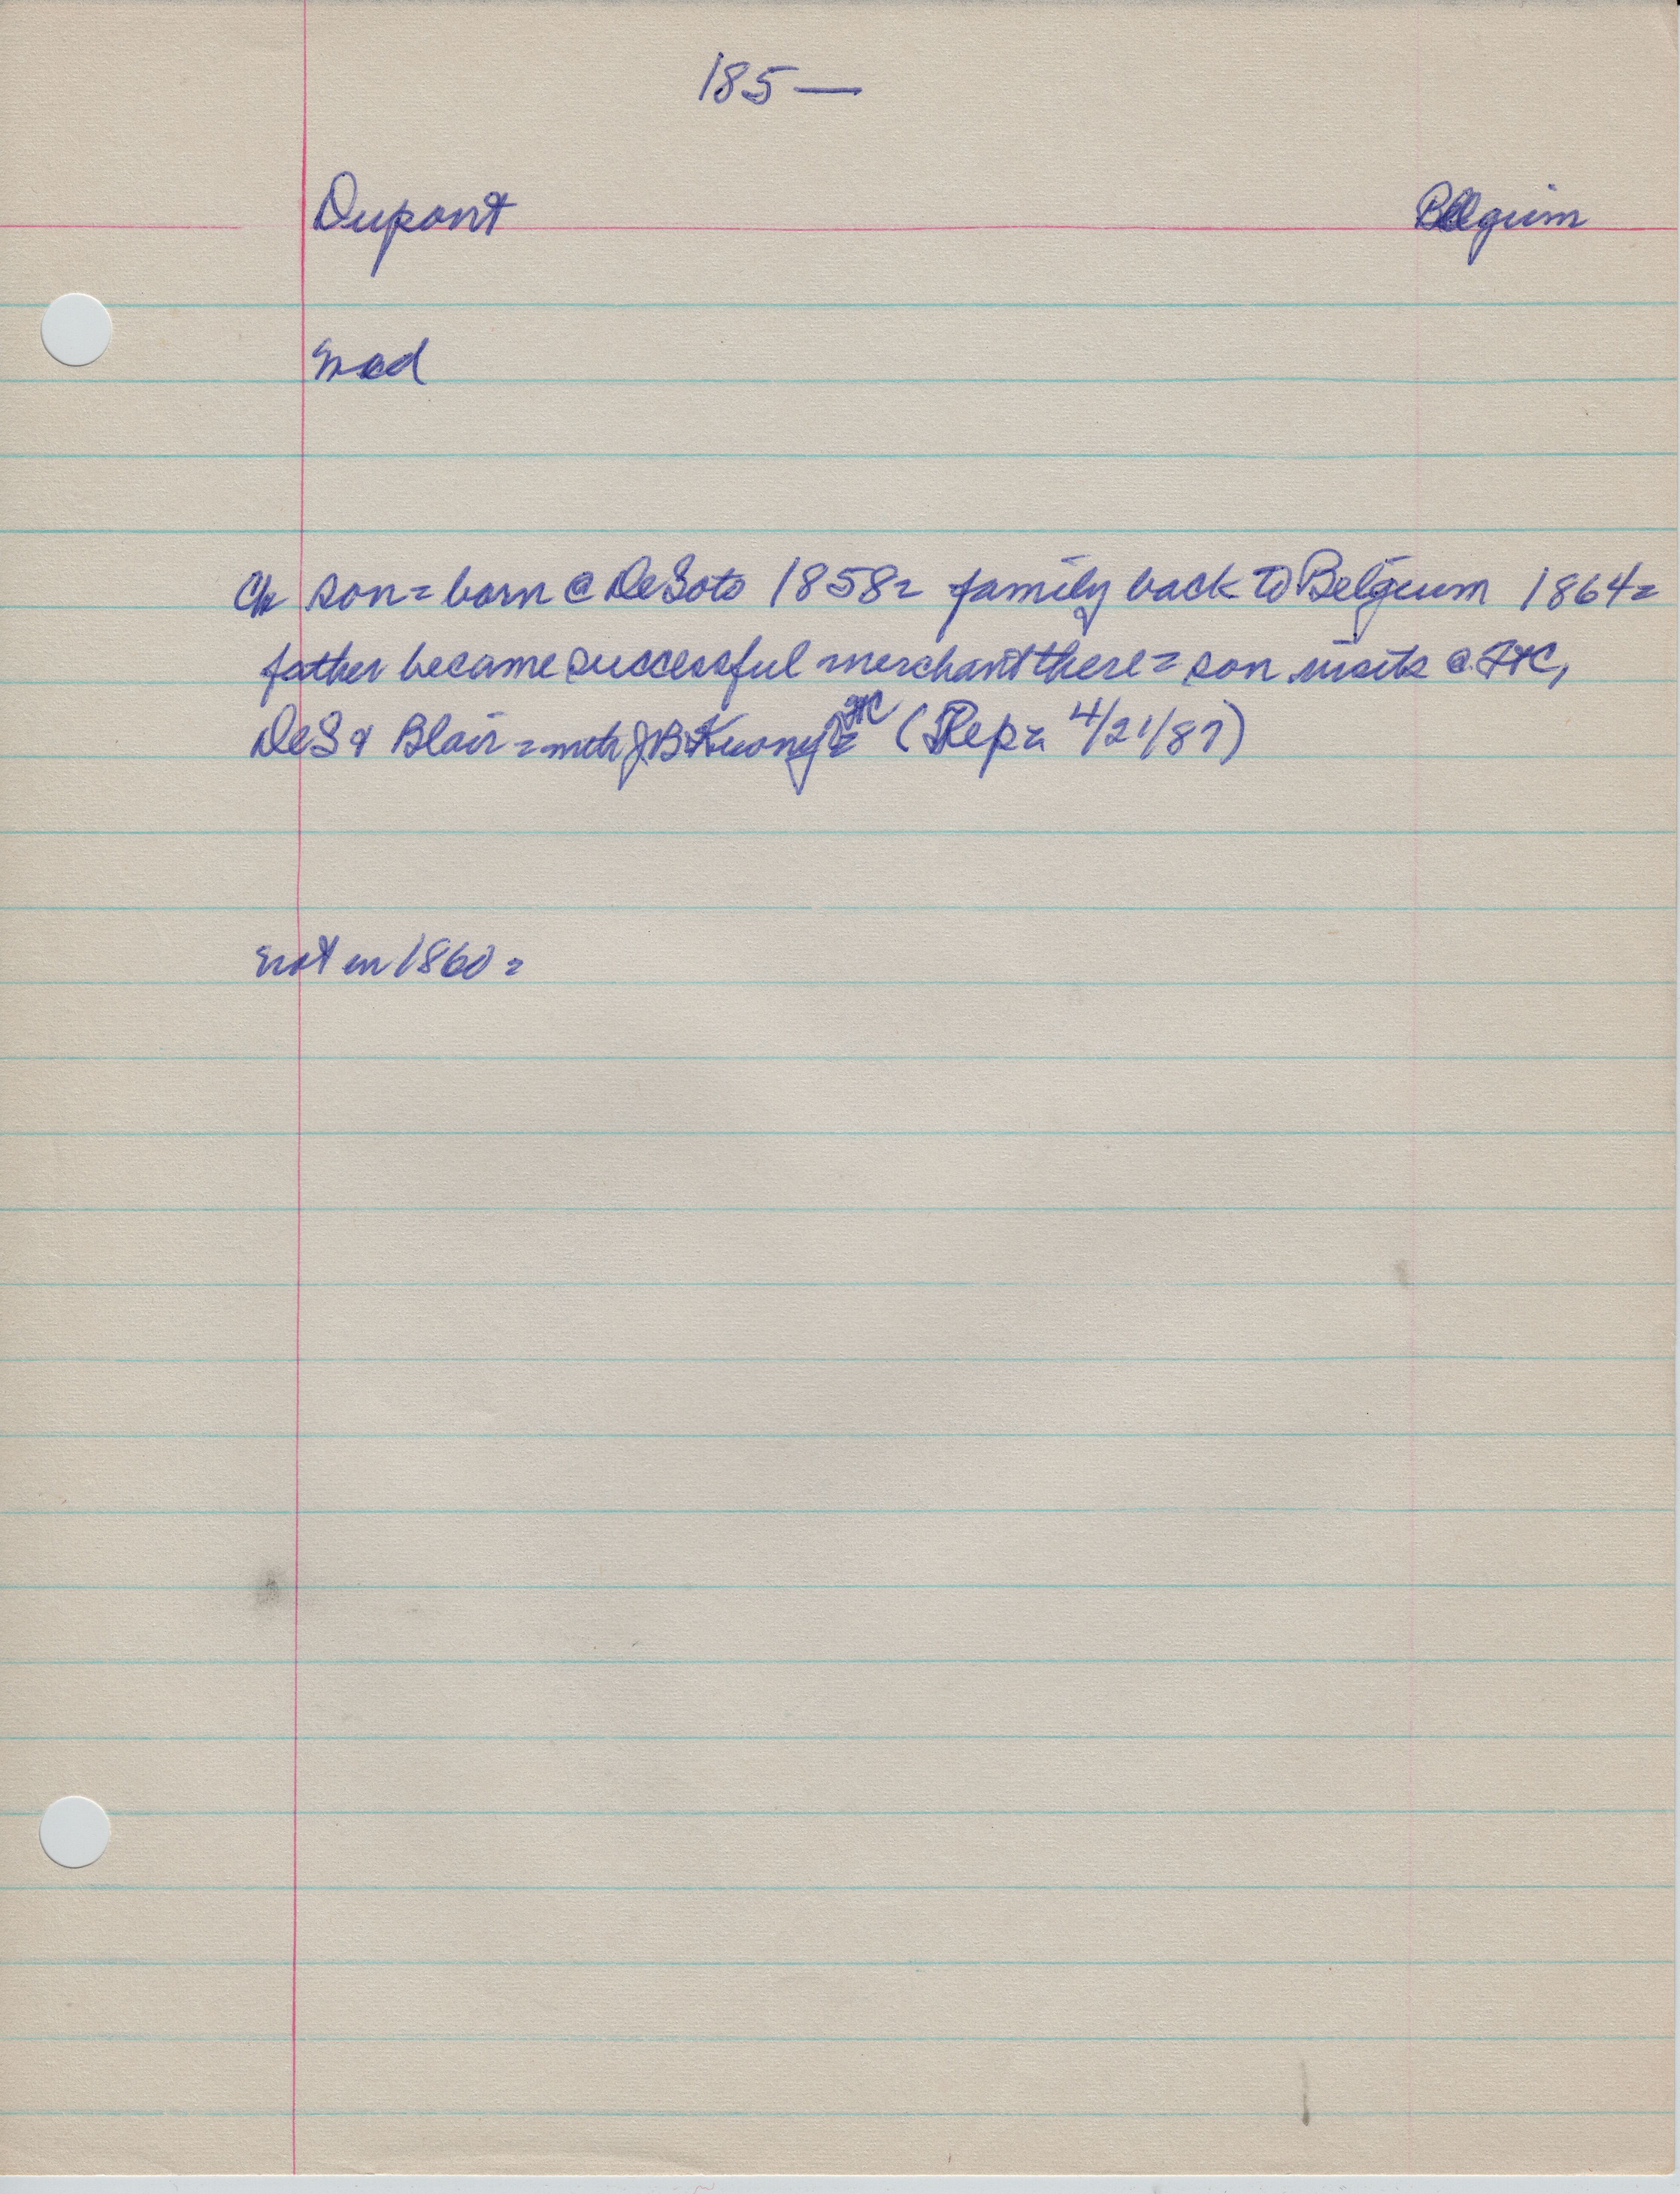 185—
Dupont Belgium
mad
Ch son = born @ DeSoto 1858 = family back to Belgium 1864 =
father became successful merchant there = son visits @ FtC,
DeS & Blair = with J.B. Kuony = FtC (Rep = 4/21/87)
not in 1860 =